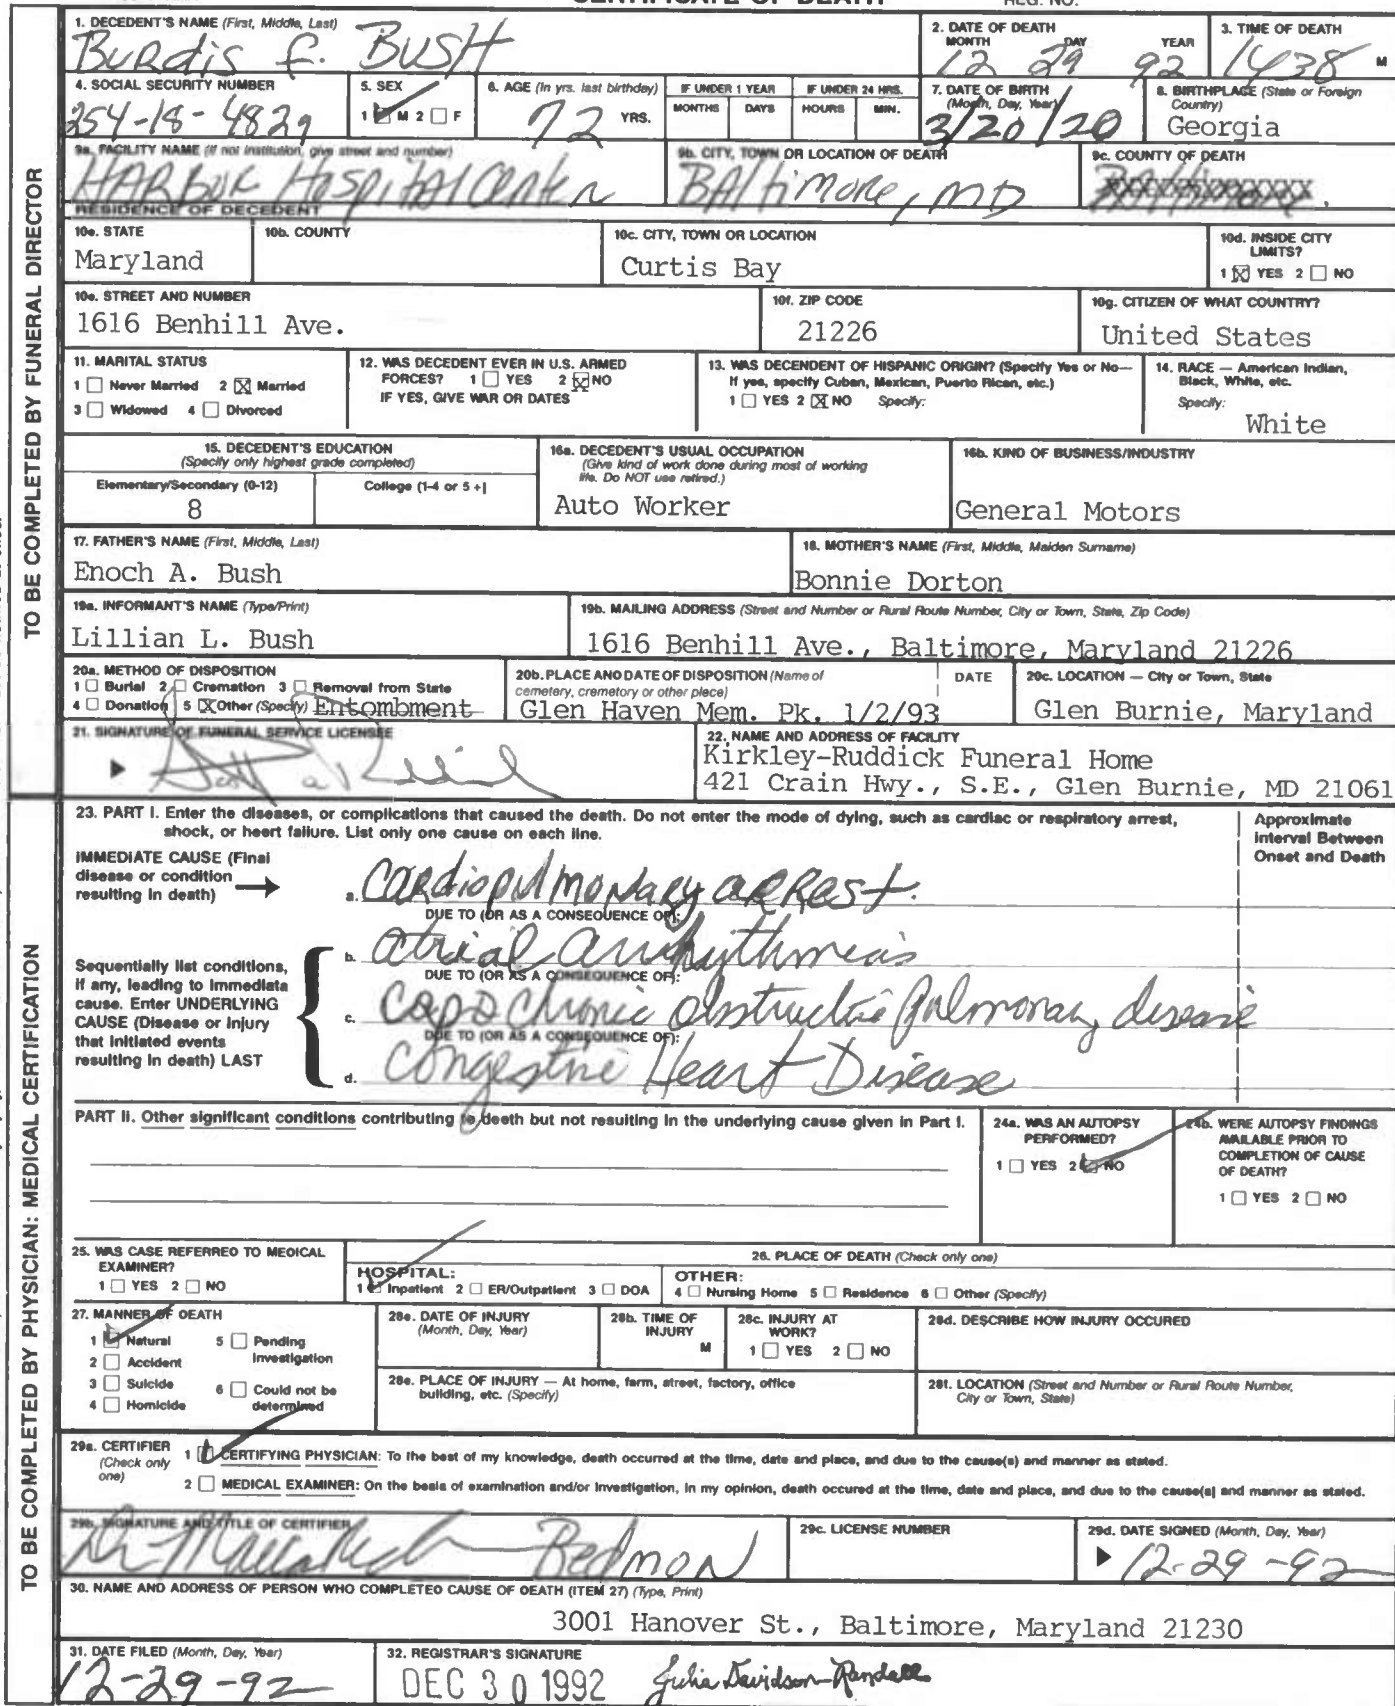 CERTIFICATE OF DEATH REG. NO.
TO BE COMPLETED BY FUNERAL DIRECTOR
1. DECEDENT'S NAME (First, Middle, Last)
Burdis F. BUSH
2. DATE OF DEATH
MONTH DAY YEAR
12 29 92
3. TIME OF DEATH
1438 M
4. SOCIAL SECURITY NUMBER
254-18-4829
5. SEX
1 M 2 F
6. AGE (In yrs. last birthday)
72 YRS.
IF UNDER 1 YEAR
MONTHS DAYS
IF UNDER 24 HRS.
HOURS MIN.
7. DATE OF BIRTH
(Month, Day, Year)
3/20/20
8. BIRTHPLACE (State or Foreign
Country)
Georgia
9a. FACILITY NAME (If not institution, give street and number)
HARBOR Hospital Center
9b. CITY, TOWN OR LOCATION OF DEATH
BAltimore, MD
9c. COUNTY OF DEATH
RESIDENCE OF DECEDENT
10a. STATE
Maryland
10b. COUNTY
10c. CITY, TOWN OR LOCATION
Curtis Bay
10d. INSIDE CITY
LIMITS?
1 X YES 2 NO
10e. STREET AND NUMBER
1616 Benhill Ave.
10f. ZIP CODE
21226
10g. CITIZEN OF WHAT COUNTRY?
United States
11. MARITAL STATUS
1 Never Married 2 X Married
3 Widowed 4 Divorced
12. WAS DECEDENT EVER IN U.S. ARMED
FORCES? 1 YES 2 X NO
IF YES, GIVE WAR OR DATES
13. WAS DECENDENT OF HISPANIC ORIGIN? (Specify Yes or No—
If yes, specify Cuban, Mexican, Puerto Rican, etc.)
1 YES 2 X NO Specify:
14. RACE — American Indian,
Black, White, etc.
Specify:
White
15. DECEDENT'S EDUCATION
(Specify only highest grade completed)
Elementary/Secondary (0-12) College (1-4 or 5+)
8
16a. DECEDENT'S USUAL OCCUPATION
(Give kind of work done during most of working
life. Do NOT use retired.)
Auto Worker
16b. KIND OF BUSINESS/INDUSTRY
General Motors
17. FATHER'S NAME (First, Middle, Last)
Enoch A. Bush
18. MOTHER'S NAME (First, Middle, Maiden Surname)
Bonnie Dorton
19a. INFORMANT'S NAME (Type/Print)
Lillian L. Bush
19b. MAILING ADDRESS (Street and Number or Rural Route Number, City or Town, State, Zip Code)
1616 Benhill Ave., Baltimore, Maryland 21226
20a. METHOD OF DISPOSITION
1 Burial 2 Cremation 3 Removal from State
4 Donation 5 X Other (Specify) Entombment
20b. PLACE AND DATE OF DISPOSITION (Name of
cemetery, crematory or other place) DATE
Glen Haven Mem. Pk. 1/2/93
20c. LOCATION — City or Town, State
Glen Burnie, Maryland
21. SIGNATURE OF FUNERAL SERVICE LICENSEE
22. NAME AND ADDRESS OF FACILITY
Kirkley-Ruddick Funeral Home
421 Crain Hwy., S.E., Glen Burnie, MD 21061
TO BE COMPLETED BY PHYSICIAN: MEDICAL CERTIFICATION
23. PART I. Enter the diseases, or complications that caused the death. Do not enter the mode of dying, such as cardiac or respiratory arrest,
shock, or heart failure. List only one cause on each line.
Approximate
Interval Between
Onset and Death
IMMEDIATE CAUSE (Final
disease or condition
resulting in death)
a. Cardiopulmonary arrest.
DUE TO (OR AS A CONSEQUENCE OF):
Sequentially list conditions,
if any, leading to immediate
cause. Enter UNDERLYING
CAUSE (Disease or injury
that initiated events
resulting in death) LAST
b. atrial arrhythmeais
DUE TO (OR AS A CONSEQUENCE OF):
c. Copd Chronic obstructive pulmonary disease
DUE TO (OR AS A CONSEQUENCE OF):
d. Congestive Heart Disease
PART II. Other significant conditions contributing to death but not resulting in the underlying cause given in Part I.
24a. WAS AN AUTOPSY
PERFORMED?
1 YES 2 NO
24b. WERE AUTOPSY FINDINGS
AVAILABLE PRIOR TO
COMPLETION OF CAUSE
OF DEATH?
1 YES 2 NO
25. WAS CASE REFERRED TO MEDICAL
EXAMINER?
1 YES 2 NO
26. PLACE OF DEATH (Check only one)
HOSPITAL:
1 Inpatient 2 ER/Outpatient 3 DOA
OTHER:
4 Nursing Home 5 Residence 6 Other (Specify)
27. MANNER OF DEATH
1 Natural 5 Pending
2 Accident Investigation
3 Suicide 6 Could not be
4 Homicide determined
28a. DATE OF INJURY
(Month, Day, Year)
28b. TIME OF
INJURY
M
28c. INJURY AT
WORK?
1 YES 2 NO
28d. DESCRIBE HOW INJURY OCCURED
28e. PLACE OF INJURY — At home, farm, street, factory, office
building, etc. (Specify)
28f. LOCATION (Street and Number or Rural Route Number,
City or Town, State)
29a. CERTIFIER
(Check only
one)
1 CERTIFYING PHYSICIAN: To the best of my knowledge, death occurred at the time, date and place, and due to the cause(s) and manner as stated.
2 MEDICAL EXAMINER: On the basis of examination and/or investigation, in my opinion, death occured at the time, date and place, and due to the cause(s) and manner as stated.
29b. SIGNATURE AND TITLE OF CERTIFIER
Redmon
29c. LICENSE NUMBER
29d. DATE SIGNED (Month, Day, Year)
12-29-92
30. NAME AND ADDRESS OF PERSON WHO COMPLETED CAUSE OF DEATH (ITEM 27) (Type, Print)
3001 Hanover St., Baltimore, Maryland 21230
31. DATE FILED (Month, Day, Year)
12-29-92
32. REGISTRAR'S SIGNATURE
DEC 30 1992 Julia Davidson-Randall